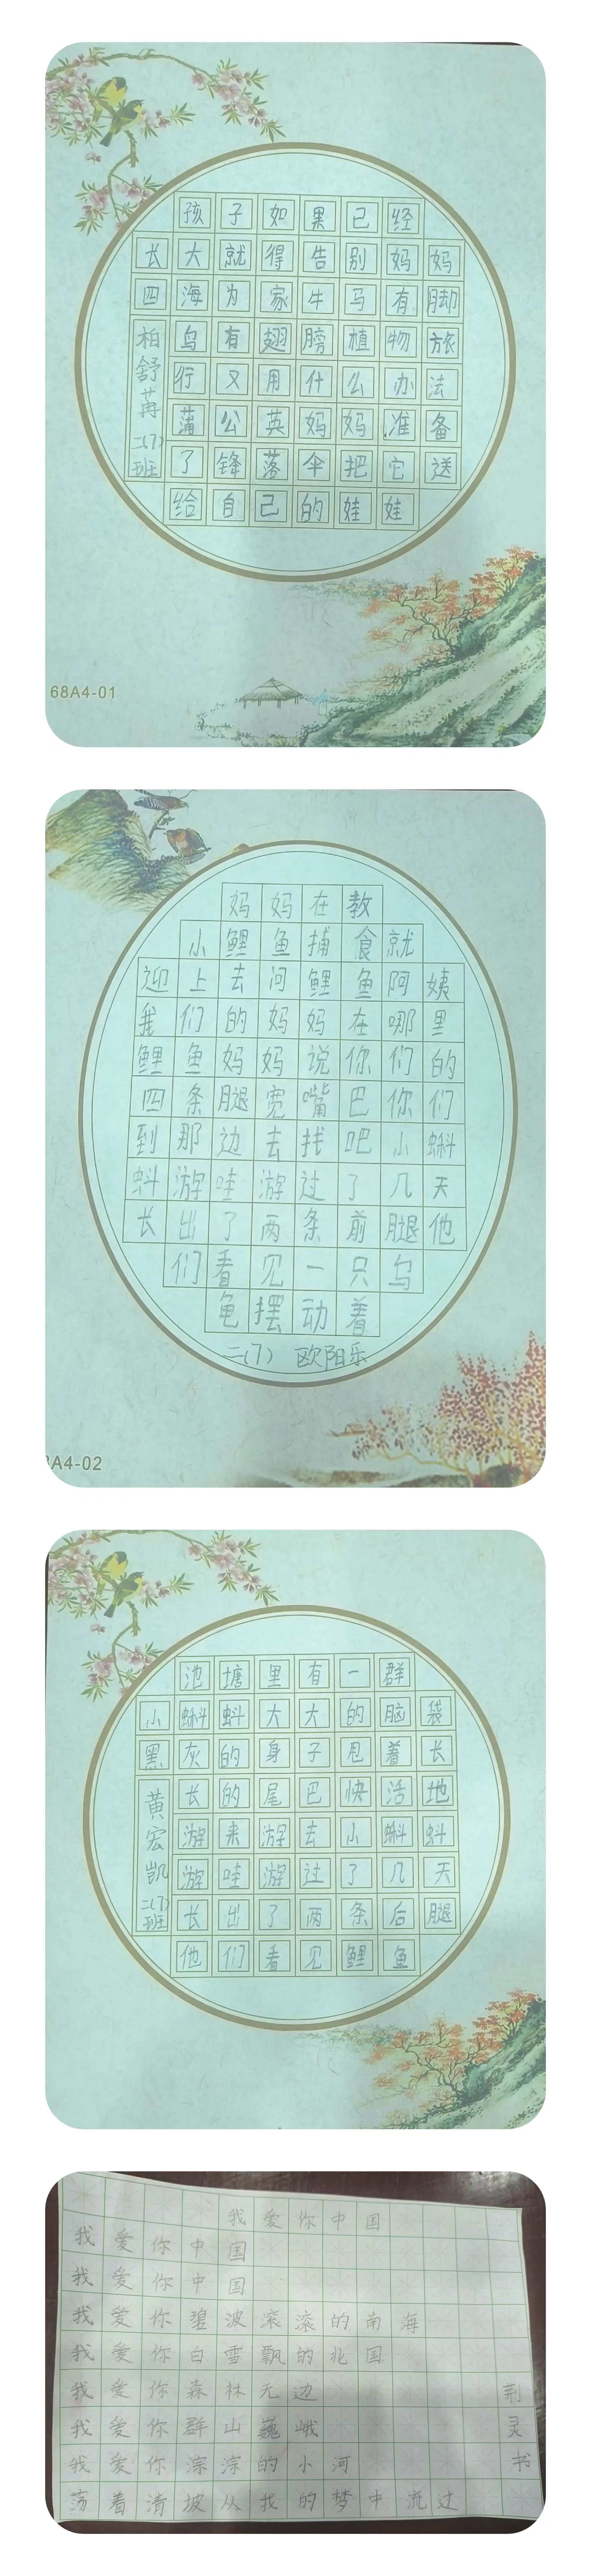 孩子如果已经
长大就得告别妈妈
四海为家牛马有脚
鸟有翅膀植物旅
行又用什么办法
蒲公英妈妈准备
了锋落伞把它送
给自己的娃娃
柏舒苒
二(7)
班
68A4-01
妈妈在教
小鲤鱼捕食就
迎上去问鲤鱼阿姨
我们的妈妈在哪里
鲤鱼妈妈说你们的
四条腿宽嘴巴你们
到那边去找吧小蝌
蚪游哇游过了几天
长出了两条前腿他
们看见一只乌
龟摆动着
二(7) 欧阳乐
A4-02
池塘里有一群
小蝌蚪大大的脑袋
黑灰的身子甩着长
长的尾巴快活地
游来游去小蝌蚪
游哇游过了几天
长出了两条后腿
他们看见鲤鱼
黄宏凯
二(7)
班
我爱你中国
我爱你中国
我爱你中国
我爱你碧波滚滚的南海
我爱你白雪飘的北国
我爱你森林无边
我爱你群山巍峨
我爱你淙淙的小河
荡着清坡从我的梦中流过
荆灵书